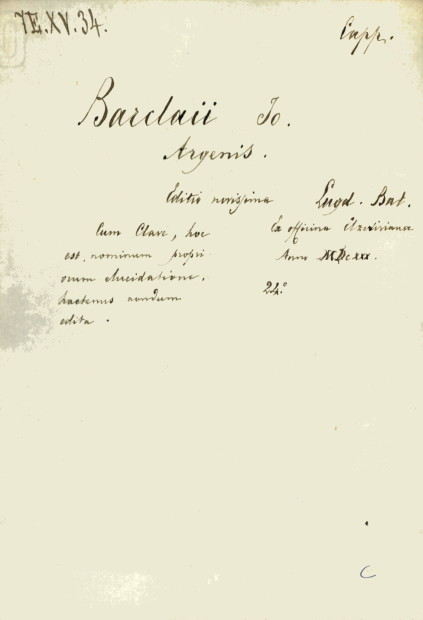 7E.XV.34.
Capp.
Barclaii Jo.
Argenis.
Editio novissima
Cum Clave, hoc
est. nominum propri
orum elucidatione.
hactenus nondum
edita.
Lugd. Bat.
Ex officina Elzeviriana
Anno MDCXXX.
24.º
C